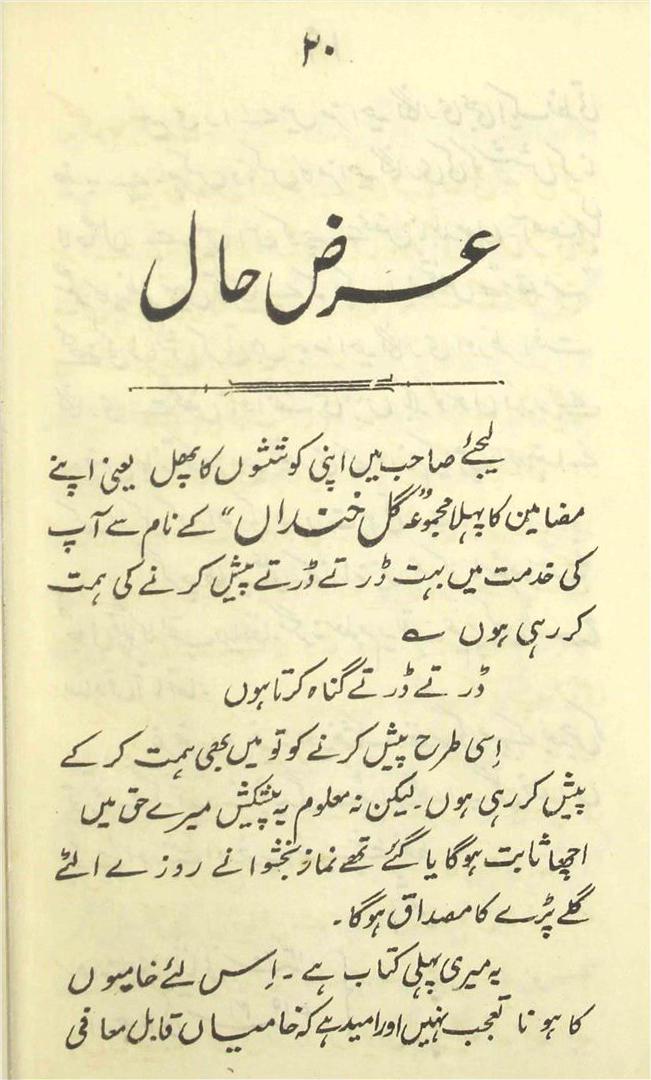 ۲۰
عرض حال
لیجئے صاحب میں اپنی کوششوں کا پھل یعنی اپنے
مضامین کا پہلا مجموعہ "گل خنداں" کے نام سے آپ
کی خدمت میں بہت ڈرتے ڈرتے پیش کرنے کی ہمت
کر رہی ہوں ؎
ڈرتے ڈرتے گناہ کرتا ہوں
اِسی طرح پیش کرنے کو تو میں بھی ہمت کر کے
پیش کر رہی ہوں۔ لیکن نہ معلوم یہ پیشکش میرے حق میں
اچھا ثابت ہوگا یا گئے تھے نماز بخشوانے روزے الٹے
گلے پڑے کا مصداق ہوگا۔
یہ میری پہلی کتاب ہے۔ اِس لئے خامیوں
کا ہونا تعجب نہیں اور امید ہے کہ خامیاں قابل معافی